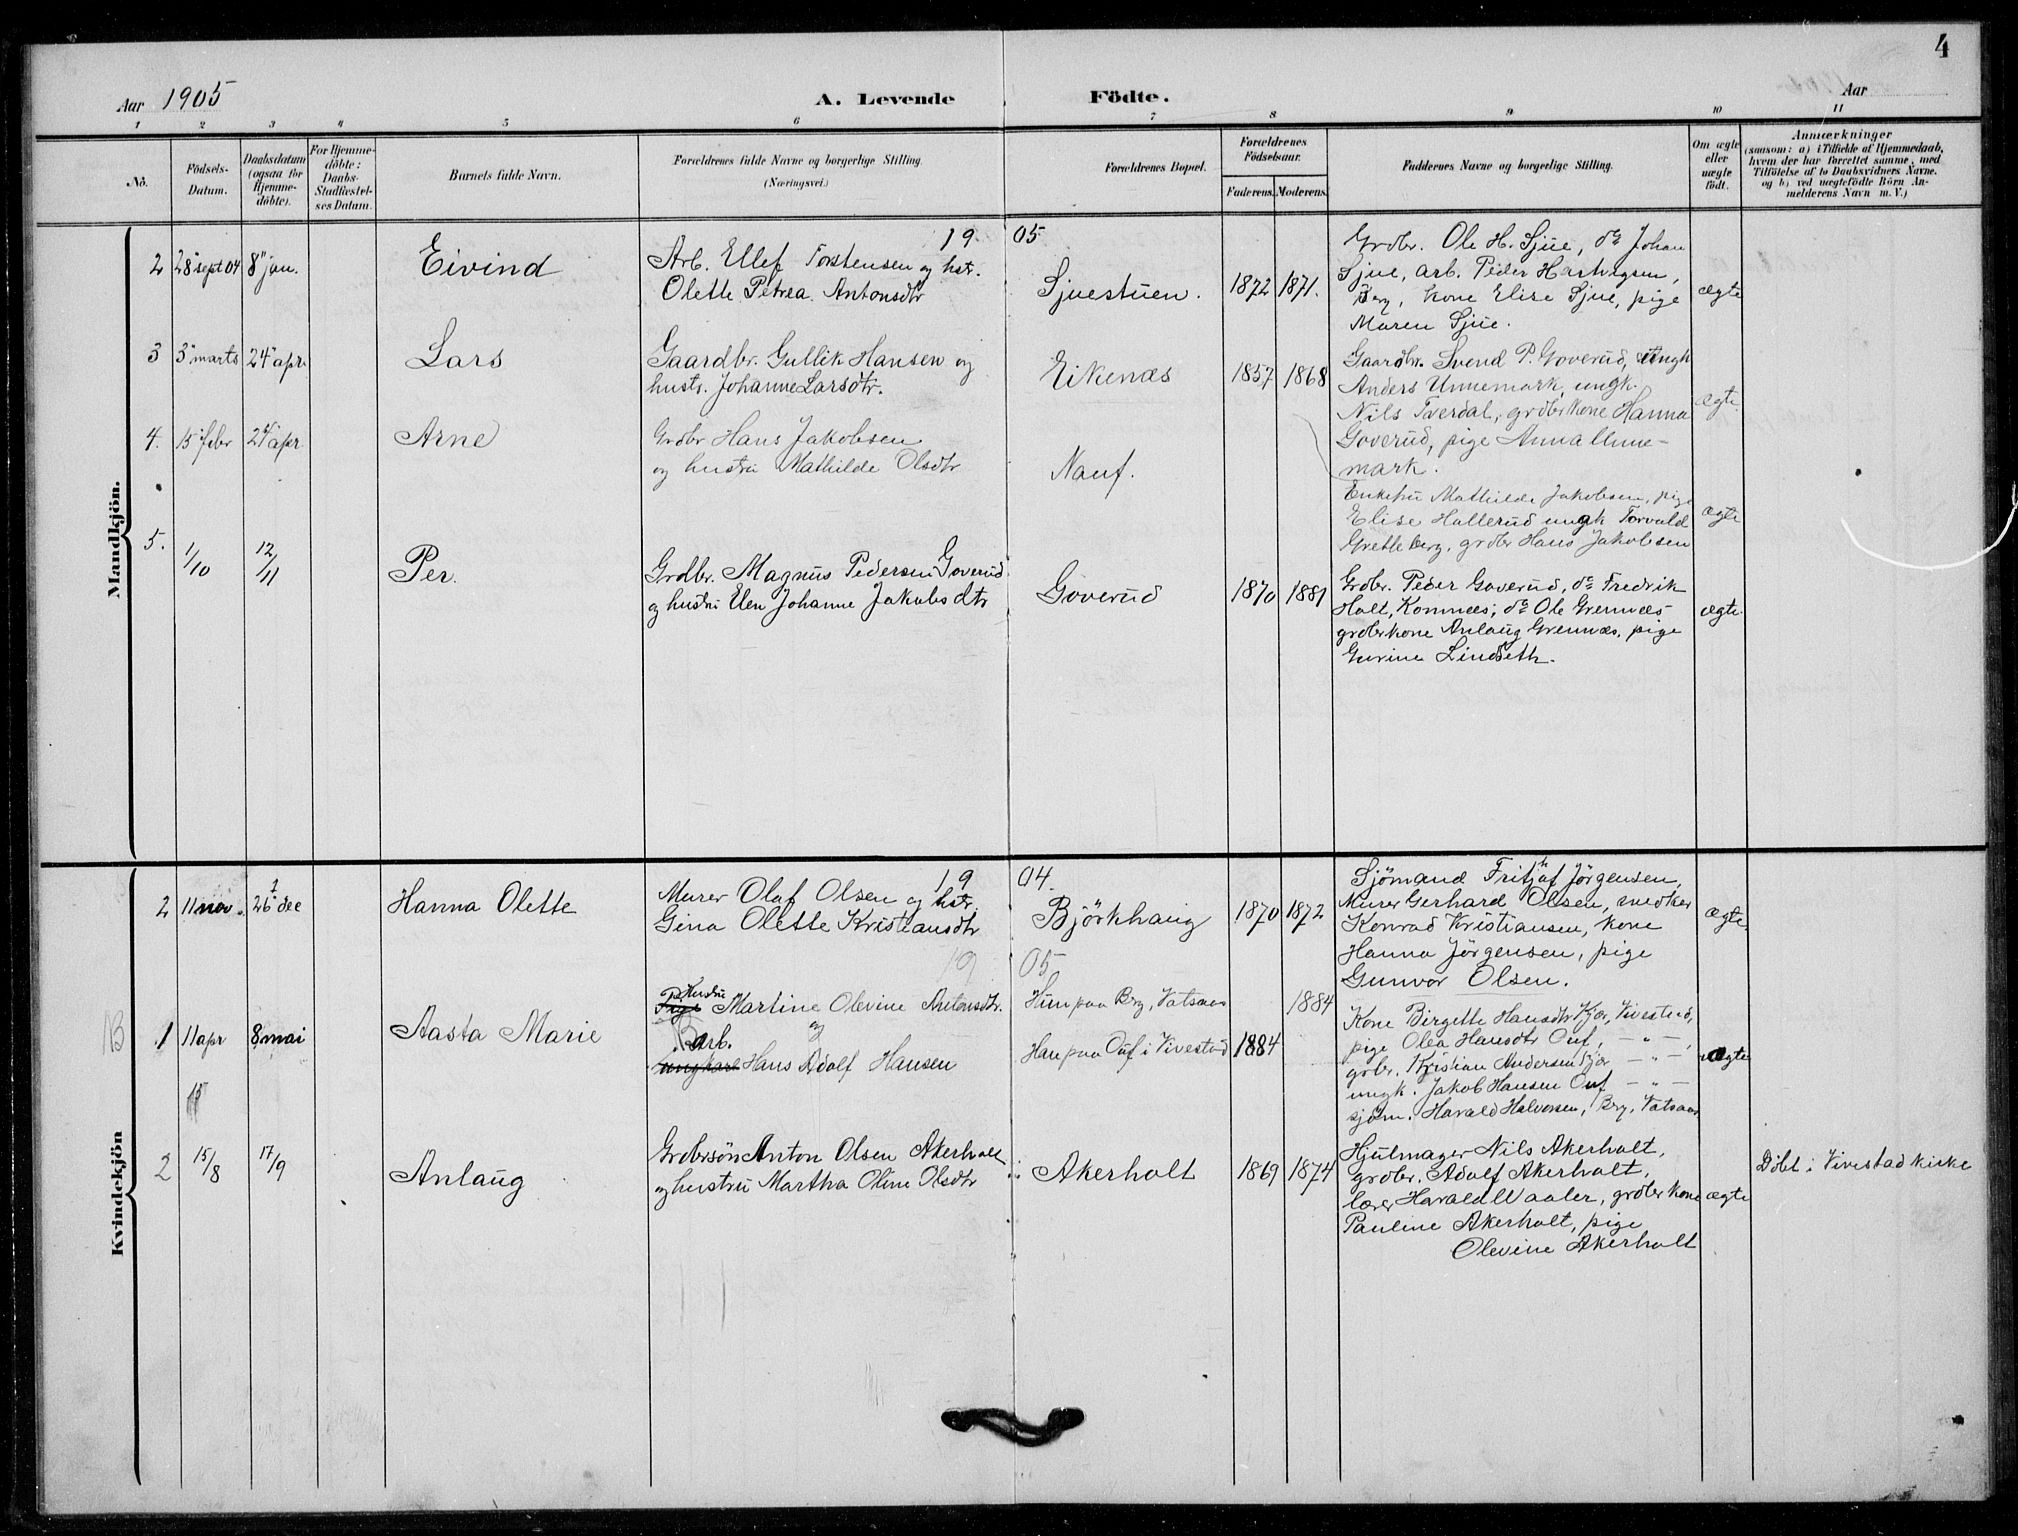 4
Aar 1905
A. Levende
Födte.
Aar
1 2 3 4 5 6 7 8 9 10 11
No.
Födsels-
Datum.
Daabsdatum
(ogsaa for
Hjemme-
döbte).
For Hjemme-
döbte:
Daabs-
Stadfæstel-
ses Datum.
Barnets fulde Navn.
Forældrenes fulde Navne og borgerlige Stilling.
(Næringsvei.)
Forældrenes Bopæl.
Forældrenes
Födselsaar.
Faderens. Moderens.
Faddernes Navne og borgerlige Stilling.
Om ægte
eller
uægte
födt.
Anmærkninger
(saasom: a) i Tilfælde af Hjemmedaab,
hvem der har forrettet samme, med
Tilföielse af to Daabsvidners Navne.
og b) ved uægtefödte Börn An-
melderens Navn m. V.)
Mandkjön.
19 05
2 28 sept 04 8 jan. Eivind
Arb. Ellef Torstensen og hst.
Olette Petrea Antonsdtr
Sjuestuen. 1872 1871.
Grdbr. Ole H. Sjue, do Johan
Sjue, arb. Peder Hartvigsen,
Berg, kone Elise Sjue, pige
Maren Sjue.
ægte
3 3 marts 24 apr. Lars
Gaardbr. Gullik Hansen og
hustr. Johanne Larsdtr.
Eikenæs 1857 1868
Gaardbr. Svend P. Goverud, ungk
Anders Unnemark, ungk.
Nils Tverdal, grdbrkone Hanna
Goverud, pige Anna Unne-
mark.
ægte.
4. 15 febr 24 apr Arne
Grdbr Hans Jakobsen
og hustru Mathilde Olsdtr
Nauf.
Enkefru Mathilde Jakobsen, pige
Elise Hallerud ungk Torvald
Gretteberg, grdbr Hans Jakobsen
ægte
5. 1/10 12/11 Per.
Grdbr. Magnus Pedersen Goverud
og hustru Elen Johanne Jakobsdtr
Goverud 1870 1881
Grdbr. Peder Goverud, do Fredrik
Holt, Komnæs, do Ole Grennæs
grdbrkone Anlaug Grennæs, pige
Gurine Lindseth.
ægte.
Kvindekjön
19 04.
2 11 nov. 26 dec Hanna Olette
Murer Olaf Olsen og hstr.
Gina Olette Kristiansdtr
Björkhaug 1870 1872
Sjömand Fritjof Jörgensen,
Murer Gerhard Olsen, snedker
Konrad Kristiansen, kone
Hanna Jörgensen, pige
Gunvor Olsen.
ægte.
19 05
1 11 apr 8 mai Aasta Marie
Hustru
Pige Martine Olevine Antonsdtr.
og
arb.
ungkarl Hans Adolf Hansen
Hun paa Brg, Vatsaas
Han paa Ouf i Vivestad 1884
1884
Kone Birgette Hansdtr Kjær, Vivestad,
pige Olea Hansdtr Ouf, — " —,
grbr. Kristian Andersen Kjær — " —
ungk. Jakob Hansen Ouf — " —
sjöm. Harald Halvorsen, Brg, Vatsaas
ægte
2 15/8 17/9 Anlaug
Grdbrsön Anton Olsen Akerholt
og hustru Martha Oline Olsdtr
Akerholt 1869 1874
Hjulmager Nils Akerholt,
grdbr. Adolf Akerholt,
lærer Harald Waaler, grdbrkone
Pauline Akerholt, pige
Olevine Akerholt
ægte
Döbt i Vivestad kirke